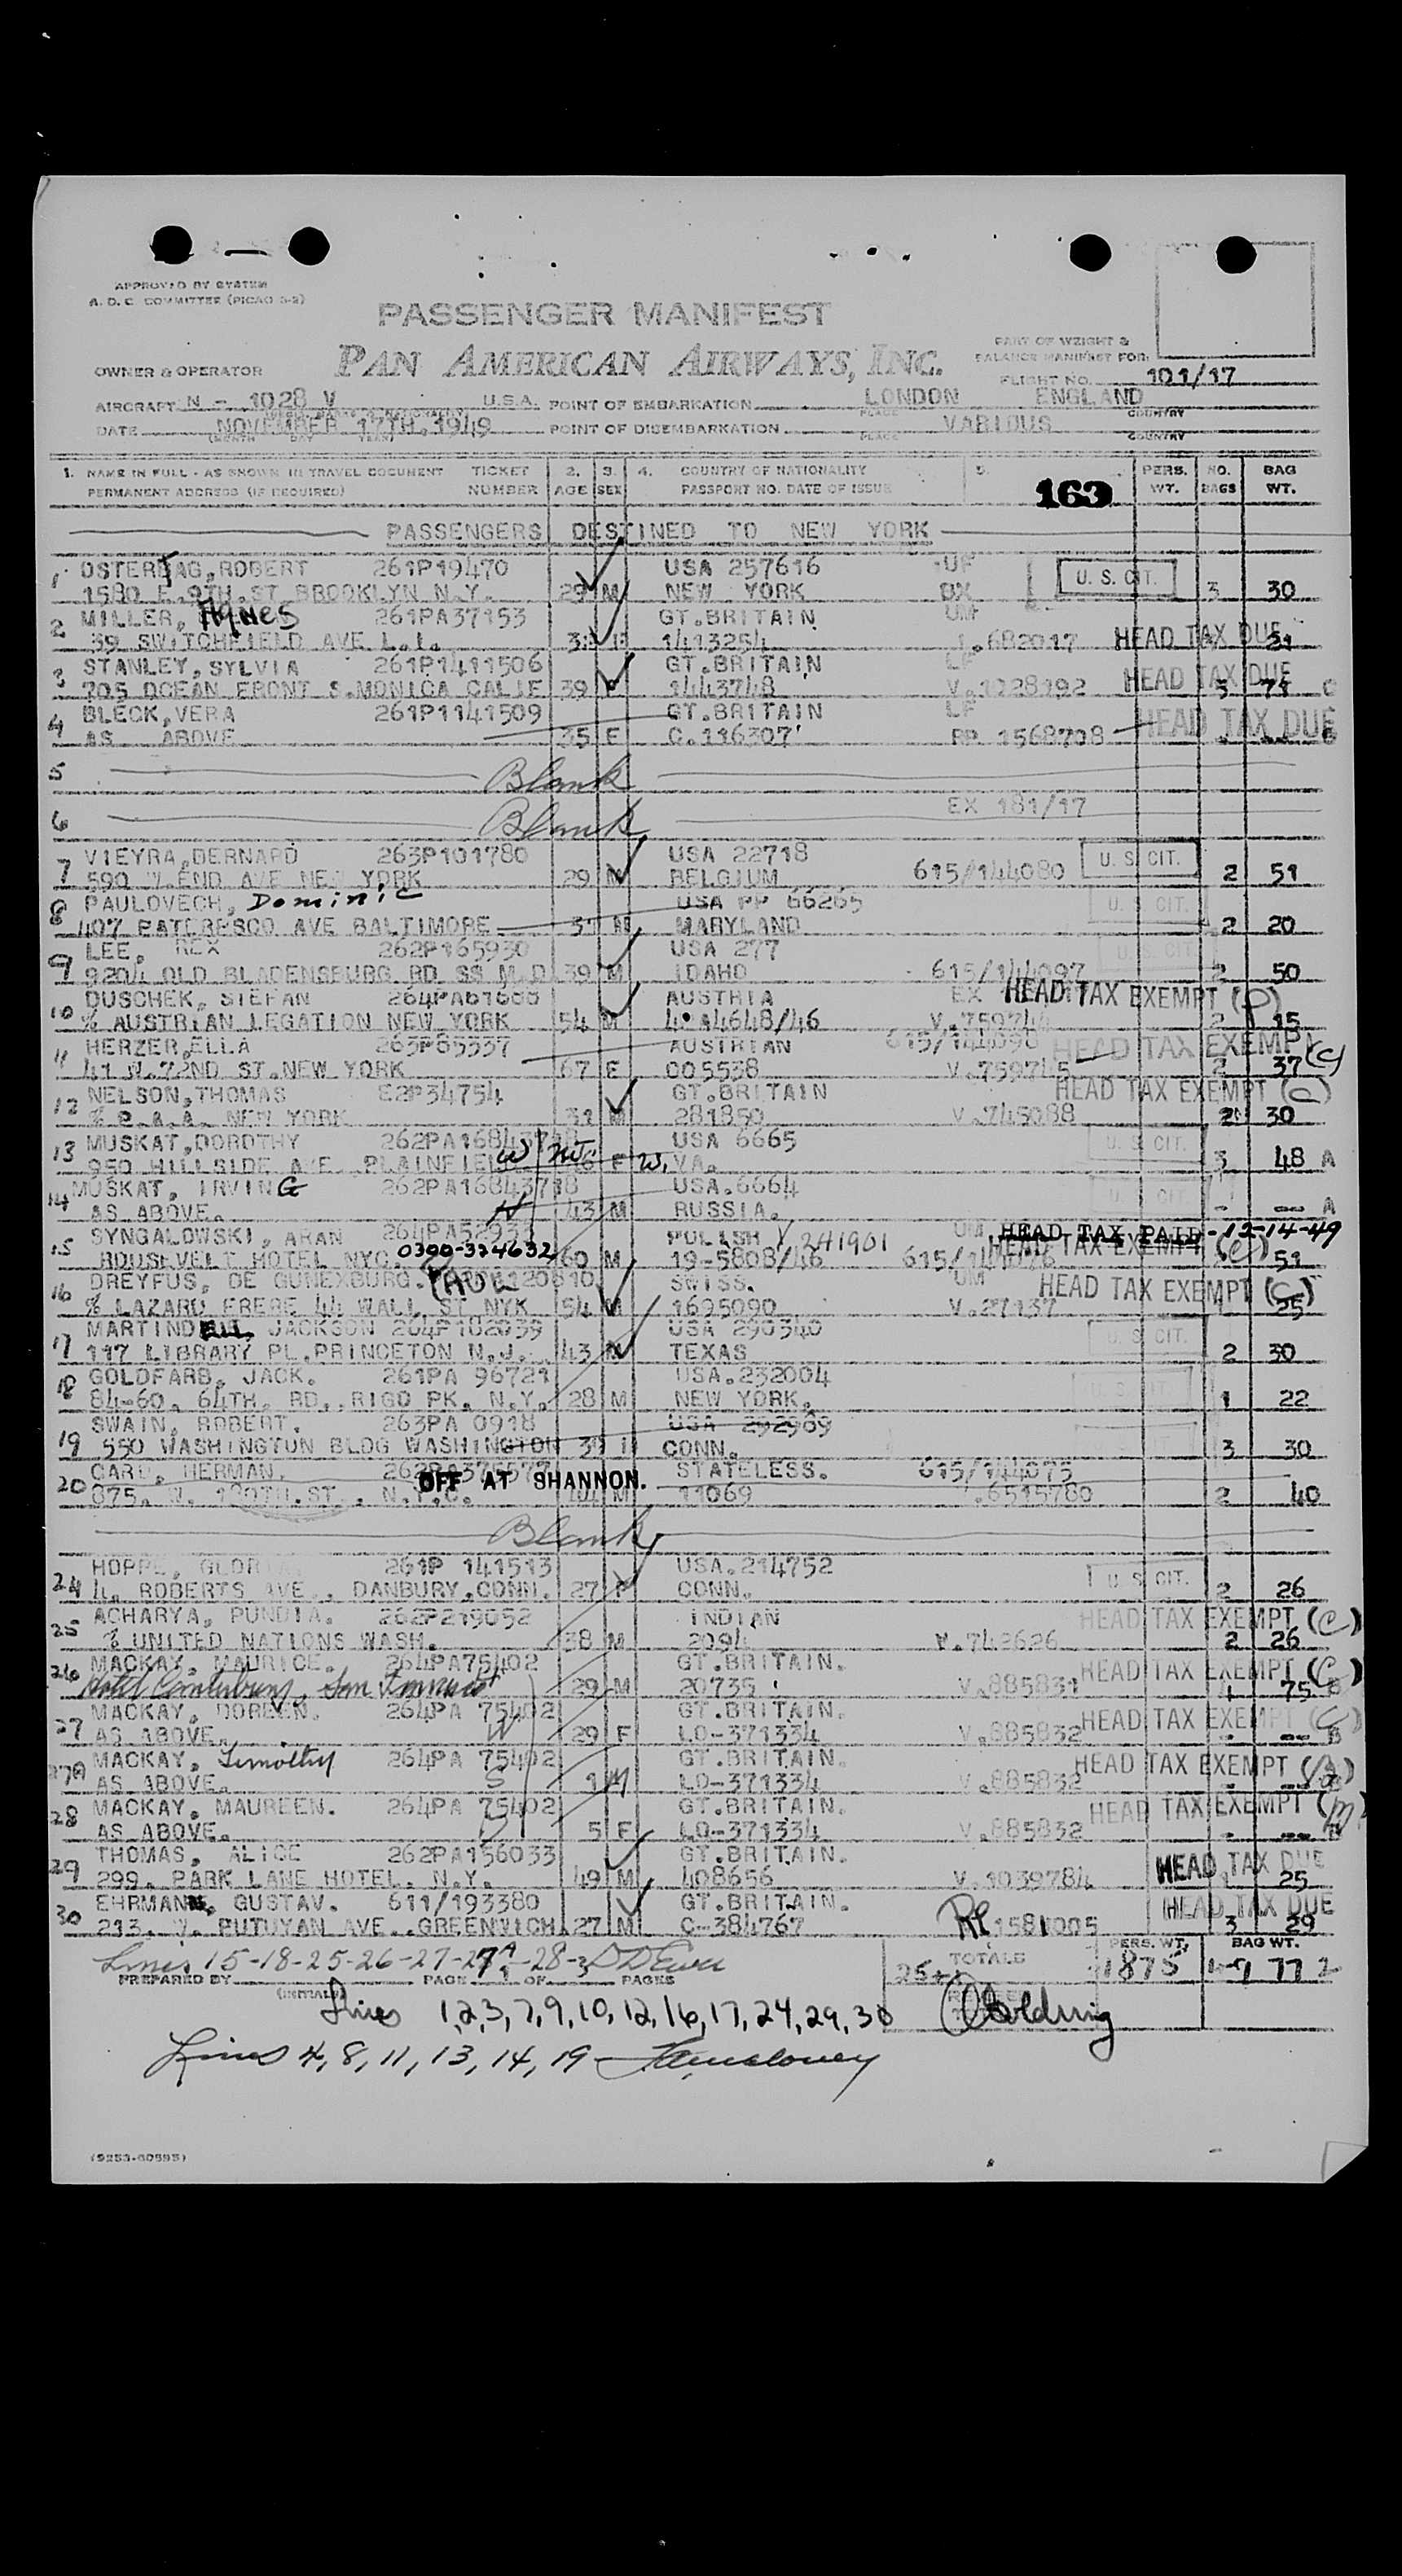 APPROVED BY SYSTEM
A. D. C. COMMITTEE (PICAO 5-2)
PASSENGER MANIFEST
PAN AMERICAN AIRWAYS, INC.
PART OF WEIGHT &
BALANCE MANIFEST FOR:
OWNER & OPERATOR
FLIGHT NO. 101/17
AIRCRAFT N - 1028 V U.S.A. POINT OF EMBARKATION LONDON ENGLAND
PLACE COUNTRY
DATE NOVEMBER 17TH, 1949 POINT OF DISEMBARKATION VARIOUS
(MONTH DAY YEAR) PLACE COUNTRY
1. NAME IN FULL - AS SHOWN IN TRAVEL DOCUMENT TICKET 2. 3. 4. COUNTRY OF NATIONALITY 5. PERS. NO. BAG
PERMANENT ADDRESS (IF REQUIRED) NUMBER AGE SEX PASSPORT NO. DATE OF ISSUE 163 WT. BAGS WT.
PASSENGERS DESTINED TO NEW YORK
1 OSTERTAG, ROBERT 261P19470 USA 257616 UF U. S. CIT.
1580 E. 9TH. ST BROOKLYN N.Y. 29 M NEW YORK 3 30
2 MILLER, Agnes 261PA37153 GT.BRITAIN
39 SWITCHFIELD AVE L.I. 1413254 .682017 HEAD TAX DUE
3 STANLEY, SYLVIA 261P1411506 GT.BRITAIN LF
705 OCEAN FRONT S.MONICA CALIF 39 F 1443748 V.1028192 HEAD TAX DUE 3 71
4 BLECK, VERA 261P1141509 GT.BRITAIN LF
AS ABOVE 35 F C.116307 RP 1568708 HEAD TAX DUE
5 Blank
6 Blank EX 181/17
7 VIEYRA, BERNARD 263P101780 USA 22718 U. S. CIT.
590 W.END AVE NEW YORK 29 M BELGIUM 615/144080 2 51
8 PAULOVECH, Dominic USA PP 66265 U. S. CIT.
407 PATERESCO AVE BALTIMORE M MARYLAND 2 20
9 LEE, REX 262P165930 USA 277 U. S. CIT.
9204 OLD BLADENSBURG RD SS M.D 39 M IDAHO 615/144097 2 50
10 DUSCHEK, STEFAN AUSTRIA EX HEAD TAX EXEMPT
% AUSTRIAN LEGATION NEW YORK 54 M 4.A4648/46 15
11 HERZER, ELLA 263P85337 AUSTRIAN 615/144090 HEAD TAX EXEMPT (C)
41 W.72ND ST.NEW YORK 67 F 005538 V.759745 2 37
12 NELSON, THOMAS E2P34754 GT.BRITAIN HEAD TAX EXEMPT
% P.A.A. NEW YORK 31 M 281850 V.745088 30
13 MUSKAT, DOROTHY USA 6665 U. S. CIT.
950 HILLSIDE AVE. F W.VA. 3 48 A
14 MUSKAT, IRVING USA.6664 U. S. CIT.
AS ABOVE. 43 M RUSSIA. - A
15 SYNGALOWSKI, ARAN POLISH V 241901 UM HEAD TAX PAID - 12-14-49
ROOSEVELT HOTEL NYC. 0300-324632 60 M 19-5808/46 HEAD TAX EXEMPT (C) 51
16 DREYFUS, DE GUNEXBURG. PAUL SWISS. UM HEAD TAX EXEMPT (C)
% LAZARD FRERE 44 WALL ST NYK 54 M 1695090 V.27137 25
17 MARTINDELL, JACKSON 264P182039 USA 290340 U. S. CIT.
117 LIBRARY PL.PRINCETON N.J. 43 M TEXAS 2 30
18 GOLDFARB, JACK. 261PA 96721 USA.232004
84-60, 64TH. RD., RIGO PK, N.Y. 28 M NEW YORK. 1 22
19 SWAIN, ROBERT. 263PA 0918 USA 292989
550 WASHINGTON BLDG WASHINGTON CONN. 3 30
20 CARO, HERMAN. OFF AT SHANNON. STATELESS. 615/144075
875. W. 180TH.ST., N.Y.C. M 11069 .6515780 2 40
Blank
24 HOPPE, GLORIA. 261P 141513 USA.214752 U. S. CIT.
4. ROBERTS AVE., DANBURY, CONN. 27 F CONN. 2 26
25 ACHARYA, PUNDIA. 262P219052 INDIAN HEAD TAX EXEMPT (C)
% UNITED NATIONS WASH. 38 M 2094 V.742626 2 26
26 MACKAY, MAURICE. 264PA75402 GT.BRITAIN. HEAD TAX EXEMPT (C)
Hotel Canterbury, San Francisco 29 M 20735 V.885831 4 75 B
27 MACKAY, DOREEN. 264PA 75402 GT.BRITAIN. HEAD TAX EXEMPT (C)
AS ABOVE. W 29 F LO-371334 V.885832 - B
27A MACKAY, Timothy 264PA 75402 GT.BRITAIN. HEAD TAX EXEMPT
AS ABOVE. S 1 M LO-371334 V.885832
28 MACKAY, MAUREEN. 264PA 75402 GT.BRITAIN. HEAD TAX EXEMPT
AS ABOVE. 5 F LO-371334 V.885832 - B
29 THOMAS, ALICE 262PA136033 GT.BRITAIN. HEAD TAX DUE
299. PARK LANE HOTEL. N.Y. 49 M 408656 V.1039784 25
30 EHRMANN, GUSTAV. 611/193380 GT.BRITAIN. HEAD TAX DUE
213. W. PUTUYAN AVE..GREENWICH 27 M C-384767 RP 1581005 3 29
Lines 15-18-25-26-27-27A-28-
PREPARED BY PAGE OF PAGES TOTALS PERS. WT. 1875 BAG WT.
(INITIALS)
Lines 1,2,3,7,9,10,12,16,17,24,29,30
Lines 4,8,11,13,14,19
(9253-60595)